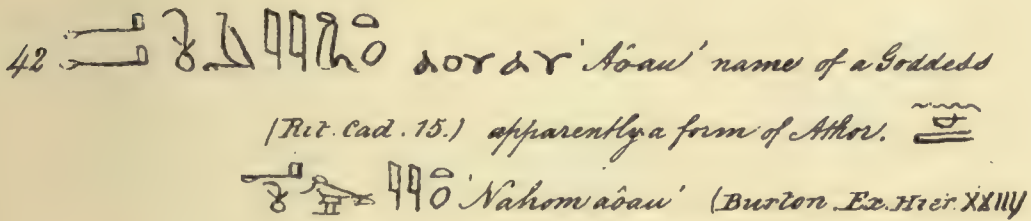 42 ⲁⲟⲩⲁⲩ 'Aôau' name of a Goddess
(Rit. Cad. 15.) apparently a form of Athor.
'Nahom aôau' (Burton Ex. Hier. XXIII)